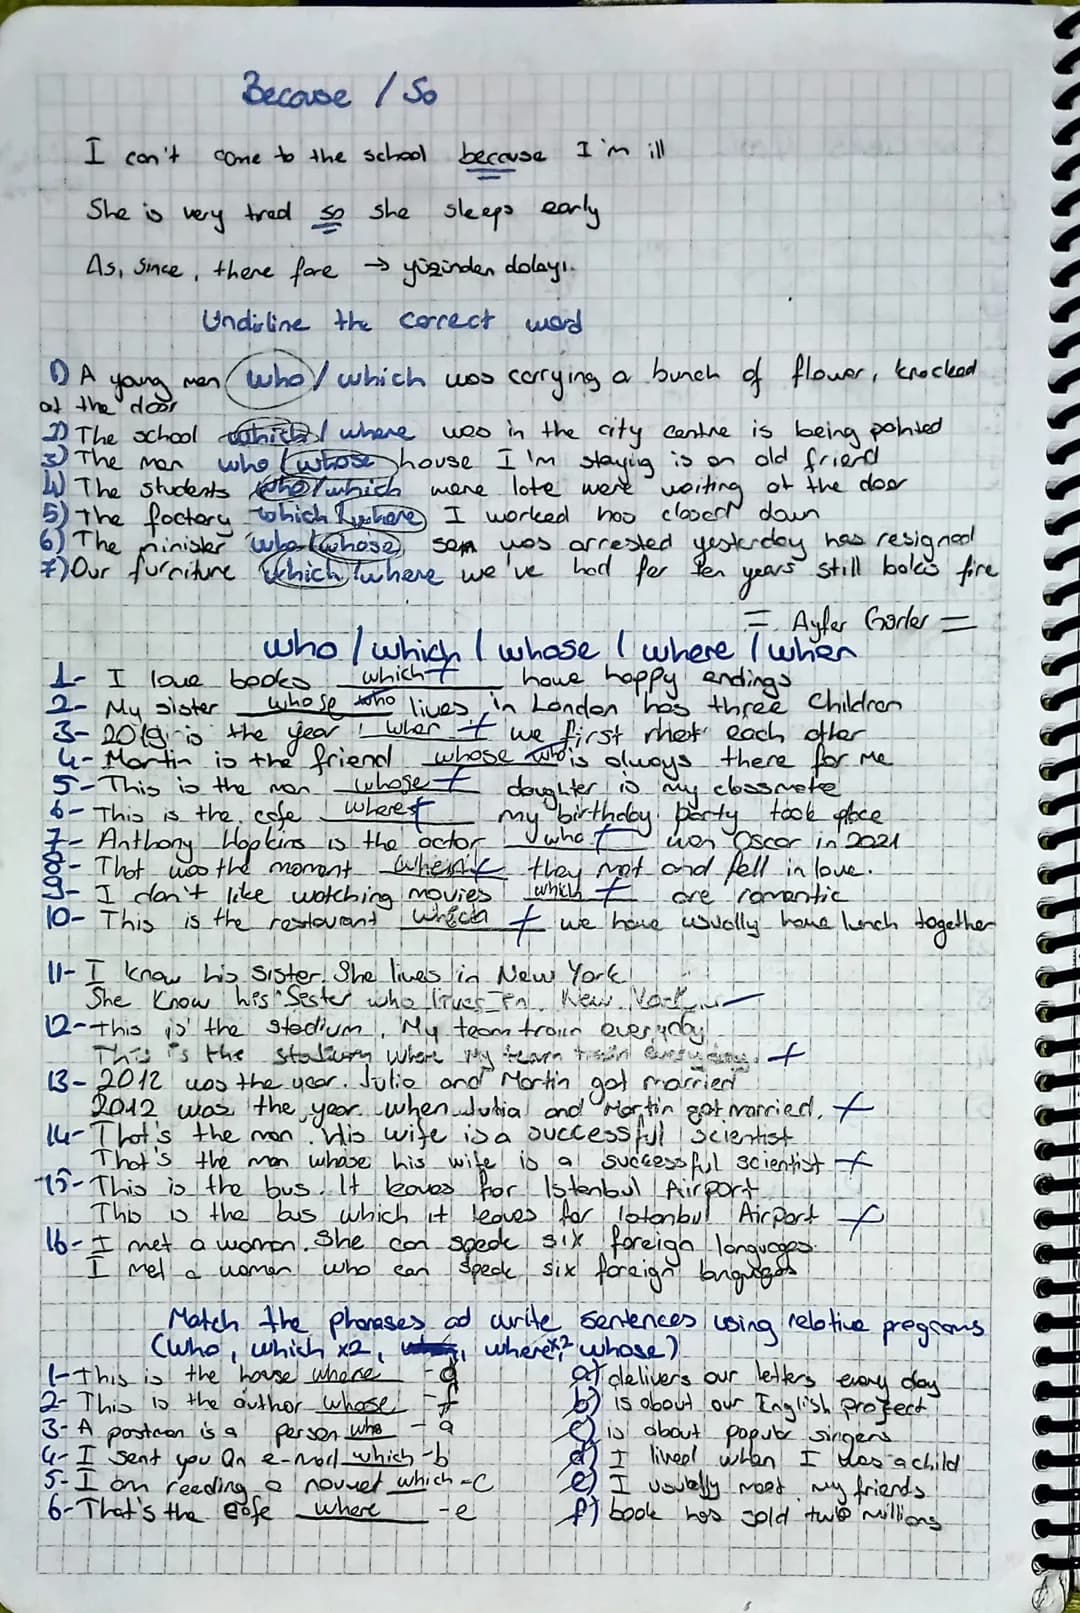 Because / So
I can't come to the school because I'm ill
She is very tred so she sleeps early
As, Since, there fore → yüzünden dolayı.
Undirline the correct word
1) A young man who / which was carrying a bunch of flower, knocked
at the door
2) The school which / where was in the city centre is being painted
3) The man who / whose house I'm staying is an old friend
4) The students who / which were late were waiting at the door
5) The factory which / where I worked has closed down
6) The minister who / whose son was arrested yesterday has resigned
7) Our furniture which / where we've had for ten years still looks fine
= Ayfer Gürler =
who / which / whose / where / when
1- I love books which + have happy endings
2- My sister whose who lives in London has three Children
3- 2019 is the year when + we first met each other
4- Martin is the friend whose who is always there for me
5- This is the man whose + daughter is my classmate
6- This is the cafe where + my birthday party took place
7- Anthony Hopkins is the actor who + won Oscar in 2021
8- That was the moment when + they met and fell in love.
9- I don't like watching movies which + are romantic
10- This is the restaurant which + we have usually have lunch together
11- I know his sister. She lives in New York
She Know his Sester who lives in New York
12- This is the stadium. My team train everyday
This is the stadium where my team train everyday. +
13- 2012 was the year. Julia and Martin got married
2012 was the year when Julia and Martin got married. +
14- That's the man. His wife is a successful scientist
That's the man whose his wife is a successful scientist +
15- This is the bus. It leaves for Istanbul Airport
This is the bus which it leaves for Istanbul Airport +
16- I met a woman. She can speak six foreign languages.
I met a woman who can speak six foreign languages
Match the phrases ad write sentences using relative pregrams
(who, which x2, where x2, whose)
1- This is the house where - d
2- This is the author whose - f
3- A postman is a person who - a
4- I sent you an e-mail which - b
5- I am reading a nouvel which - c
6- That's the cafe where - e
a) delivers our letters every day
b) is about our English project
c) is about popular singers
d) I lived when I was a child
e) I usually meet my friends
f) book has sold two millions